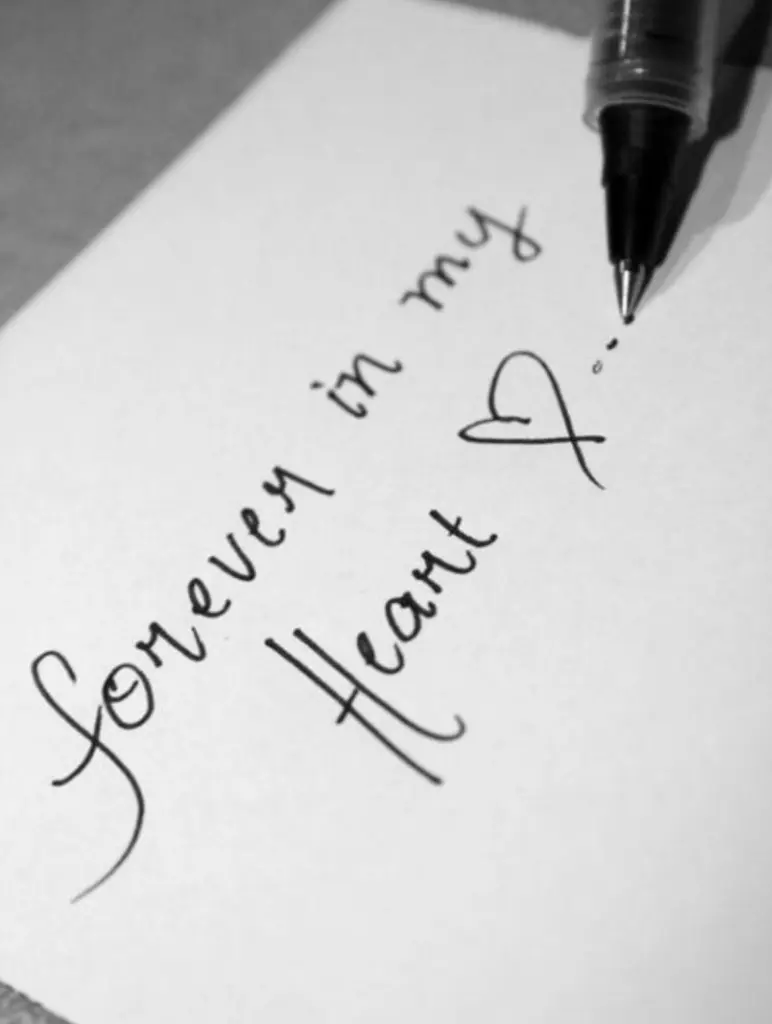 forever in my
Heart ♡...